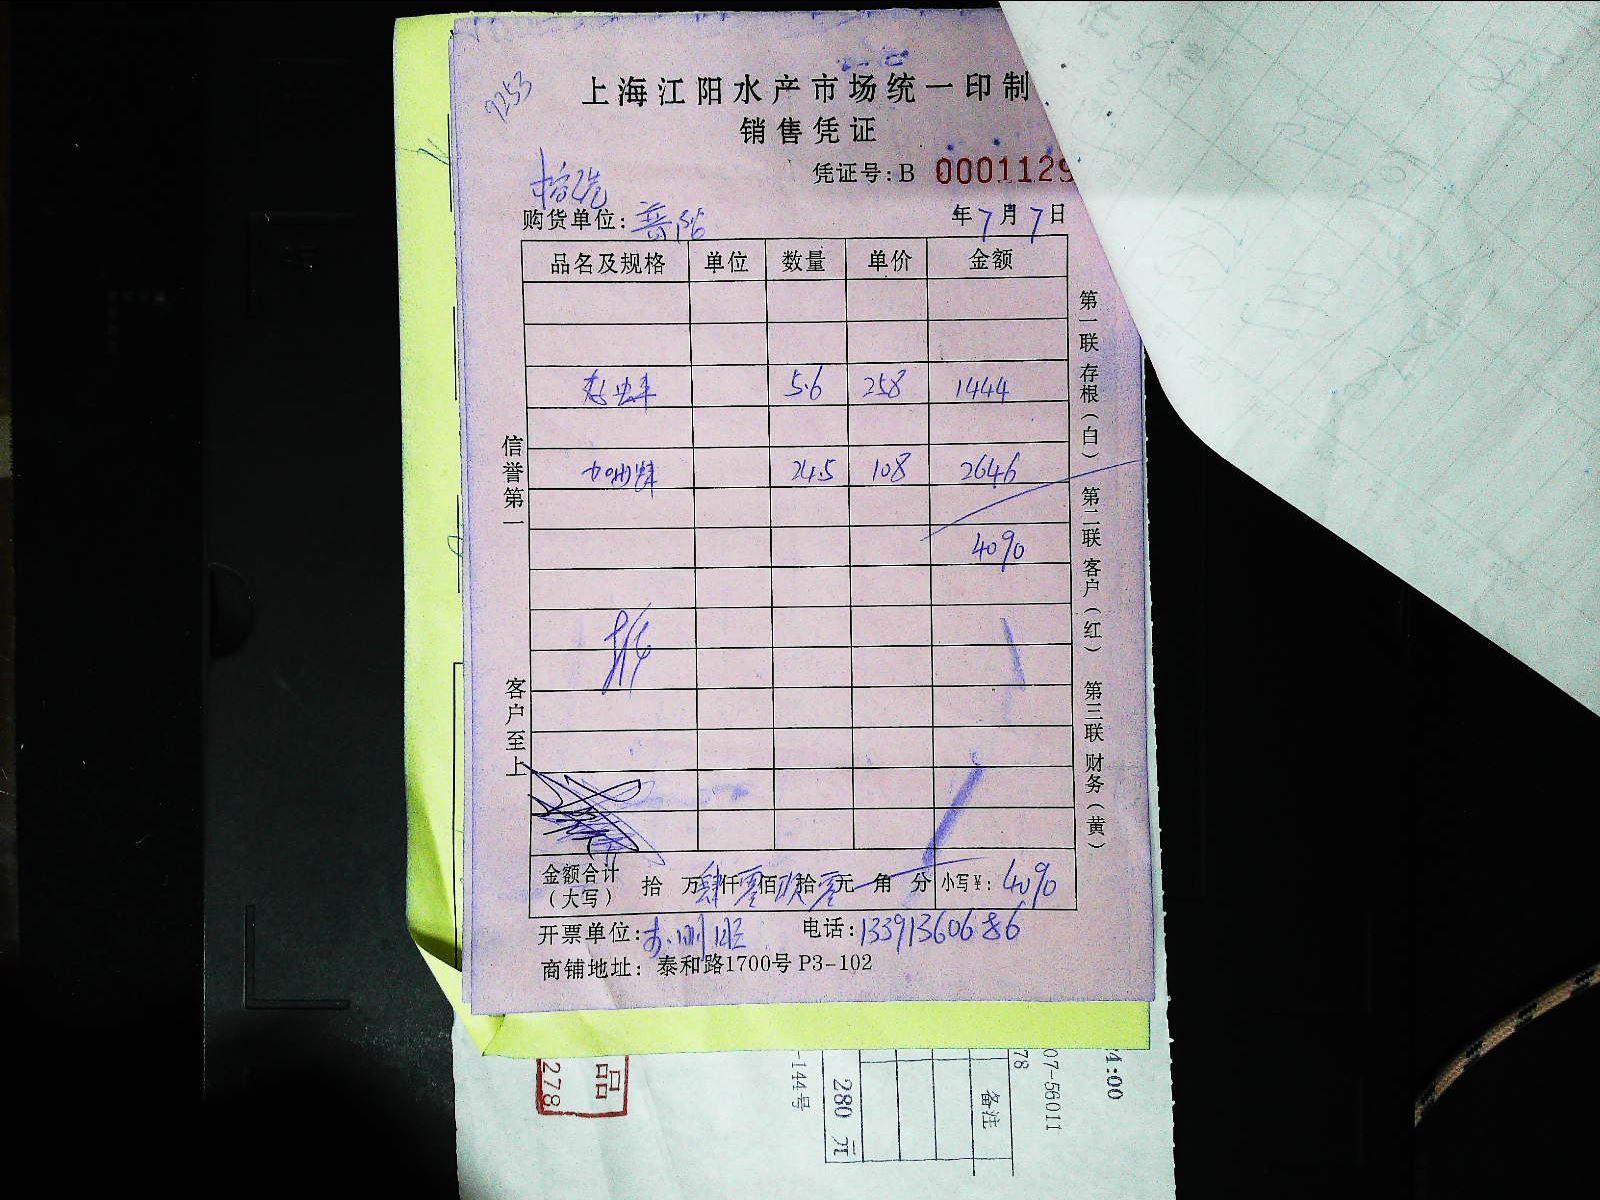 9253
上海江阳水产市场统一印制
销售凭证
凭证号:B 0001129
购货单位:
年7月7日
品名及规格 单位 数量 单价 金额
5.6 258 1444
加州鲈 24.5 108 2646
4090
金额合计(大写) 拾 万肆仟零佰玖拾零元 角 分 小写¥: 4090
开票单位: 电话:13391360686
商铺地址: 泰和路1700号 P3-102
信誉第一
客户至上
第一联 存根(白) 第二联 客户(红) 第三联 财务(黄)
品
278
-144号
280 元
备注
78
07-56011
4:00